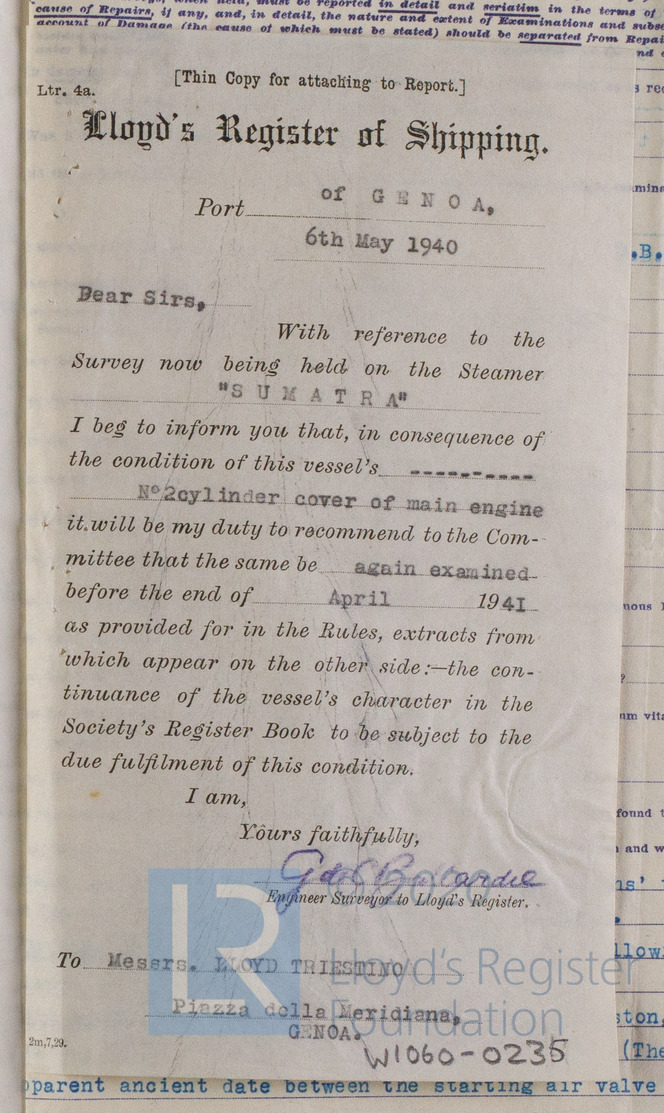 when held, must be reported in detail and seriatim in the terms of
cause of Repairs, if any, and, in detail, the nature and extent of Examinations and subse
account of Damage (the cause of which must be stated) should be separated from Repai
[Thin Copy for attaching to Report.]
Ltr. 4a.
Lloyd's Register of Shipping.
Port of GENOA,
6th May 1940
Dear Sirs,
With reference to the
Survey now being held on the Steamer
"SUMATRA"
I beg to inform you that, in consequence of
the condition of this vessel's ----------
No 2cylinder cover of main engine
it will be my duty to recommend to the Com-
mittee that the same be again examined
before the end of April 1941
as provided for in the Rules, extracts from
which appear on the other side:—the con-
tinuance of the vessel's character in the
Society's Register Book to be subject to the
due fulfilment of this condition.
I am,
Yours faithfully,
Engineer Surveyor to Lloyd's Register.
To Messrs. LLOYD TRIESTINO
Piazza della Meridiana,
GENOA.
2m,7,29.
W1060-0235
LR Lloyd's Register
Foundation
parent ancient date between the starting air valve